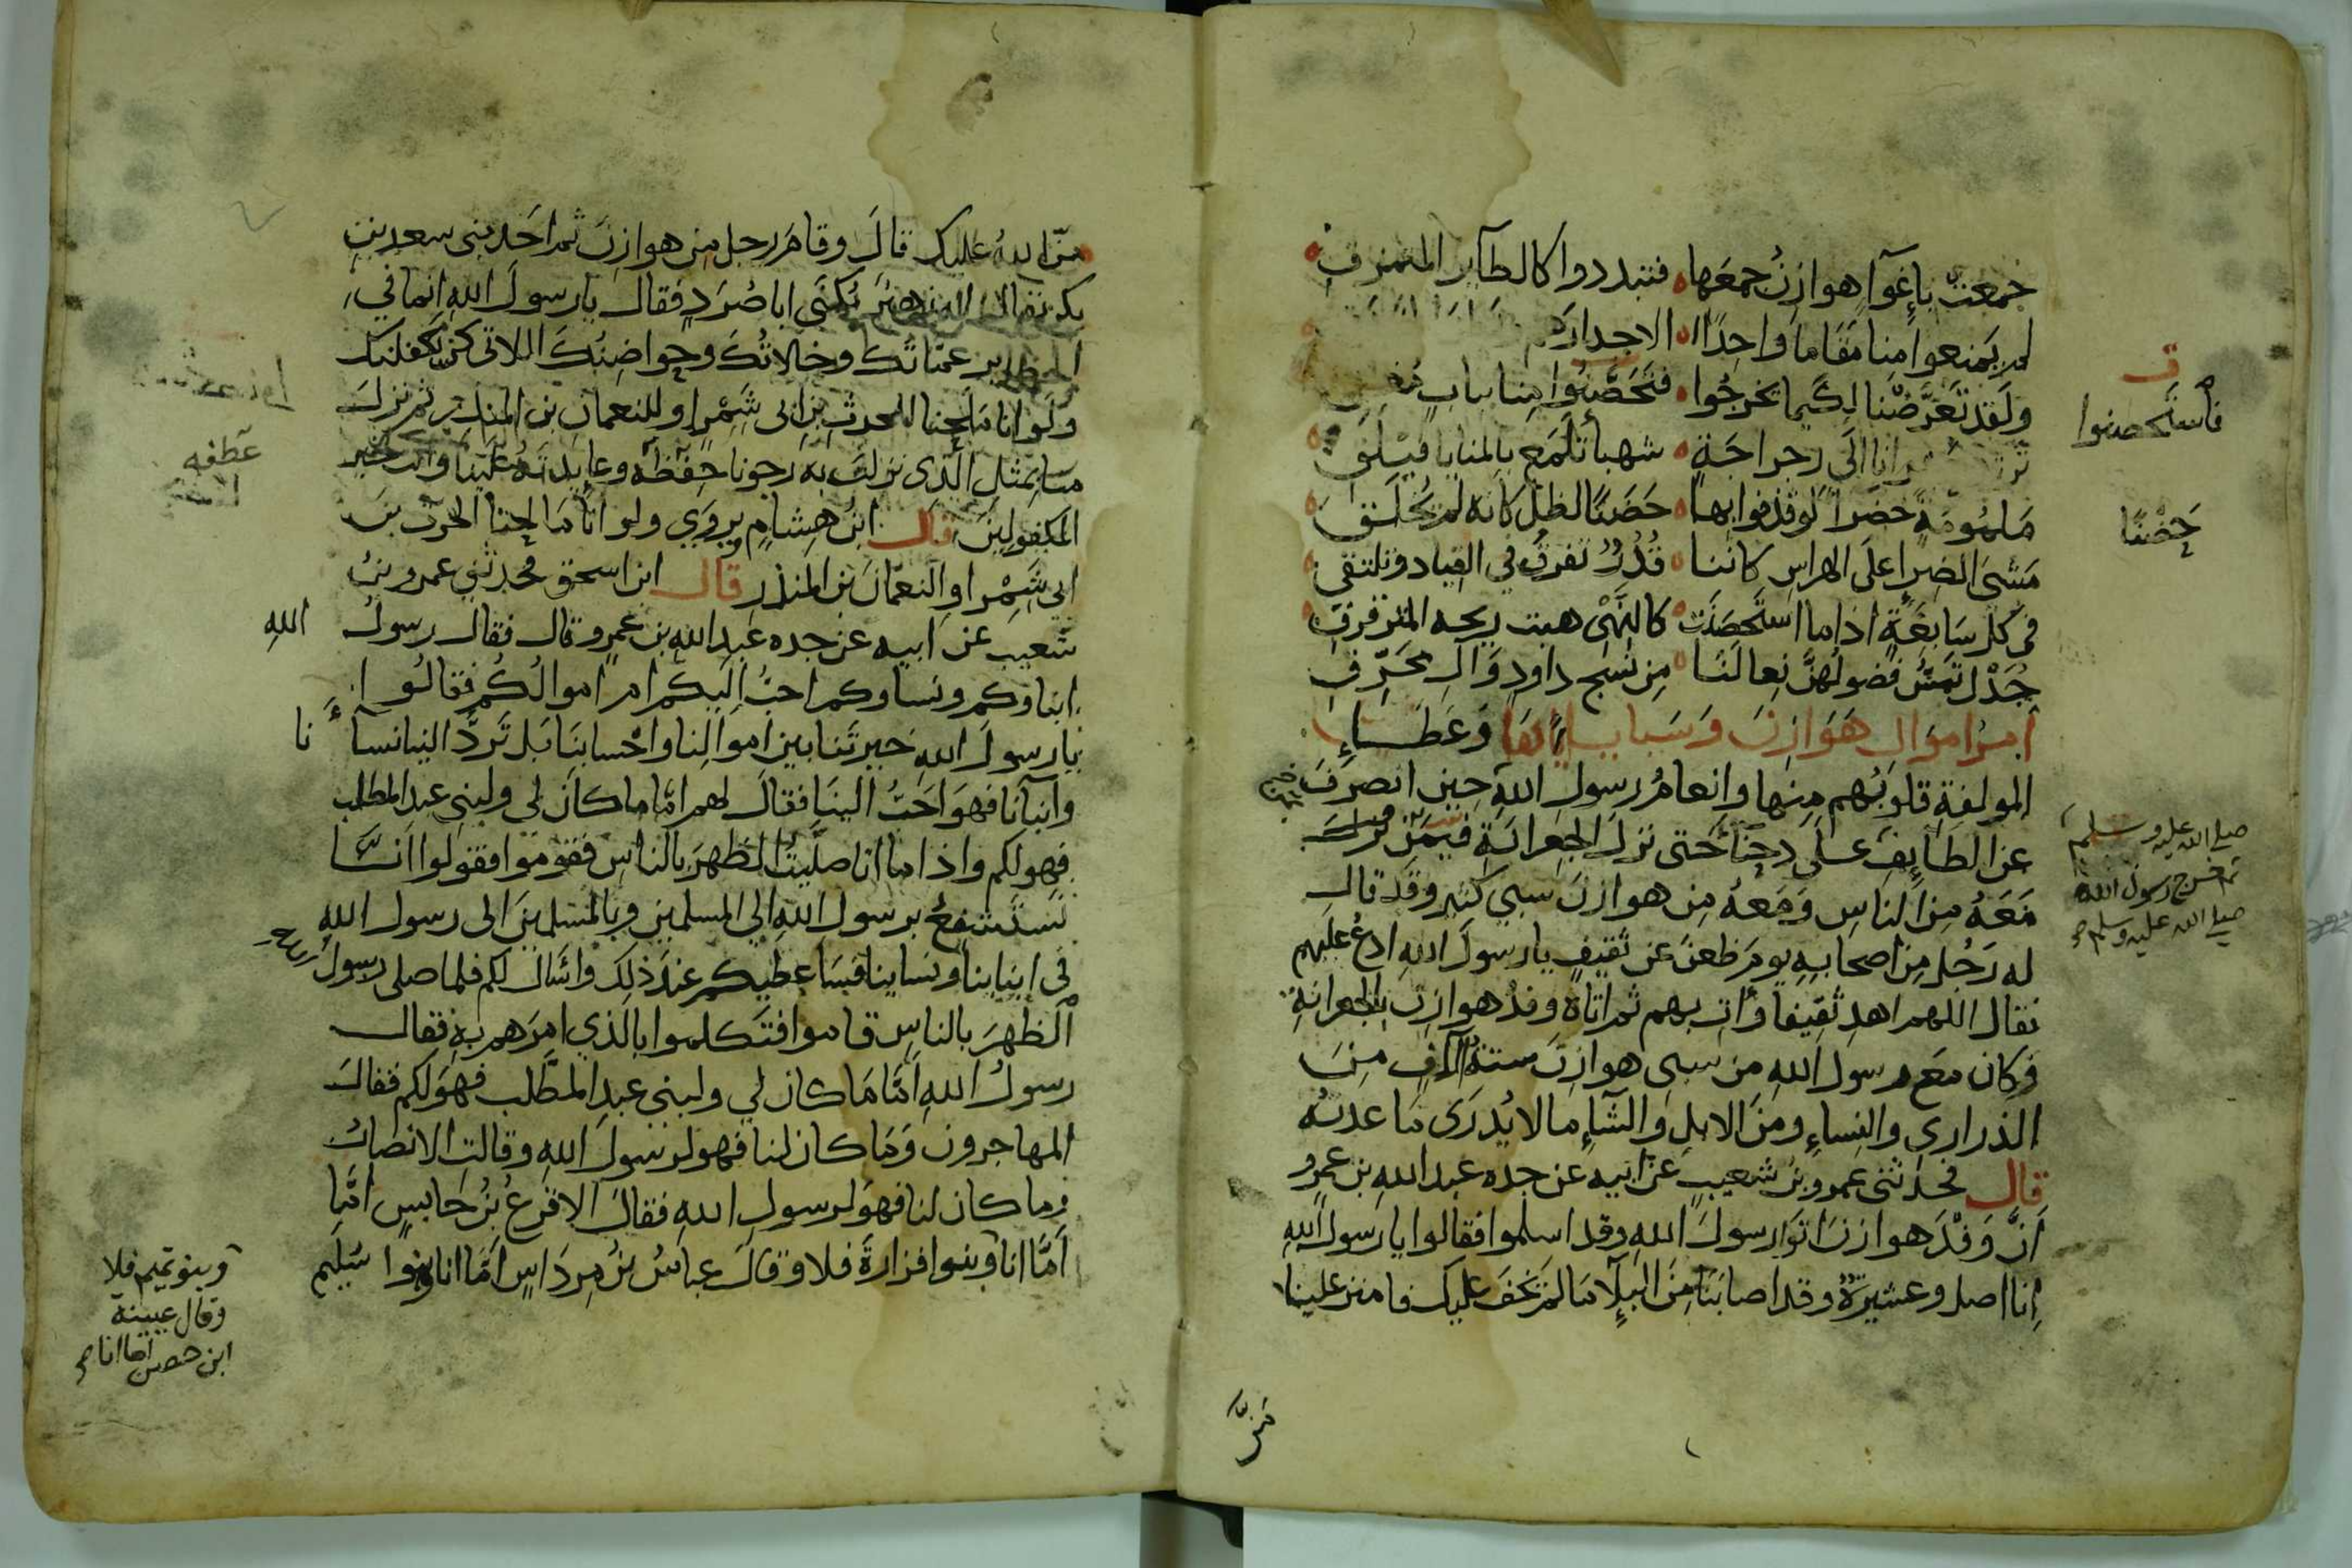 جمعت بإغوآ هوازن جمعها فتبددوا كالطآير المتمزق
لم يمنعوا منا مقاما واحدا الا جدارهم
ولقد تعرضنا لكيما يخرجوا فتحصنوا منا بباب
فاستحصنوا
انا الى رجراجة شهبا تلمع بالمنايا فيلق
ملمومة خضرا لو قذفوا بها حضنا لظل كانه لم يخلق
حضنا
مشي الضرا على الهراس كاننا قدر تفرق في القياد وتلتقي
في كل سابغة اذا ما استحصنت كالنهي هبت ريحه المترقرق
جدل تمس فضولهن نعالنا من نسج داود وال محرق
امر اموال هوازن وسباياها وعطايا
المولفة قلوبهم منها وانعام رسول الله حين انصرف
صلى الله عليه وسلم
عن الطايف على دحنا حتى نزل الجعرانة فيمن
ثم خرج رسول الله
صلى الله عليه وسلم
معه من الناس ومعه من هوازن سبي كثير وقد قال
له رجل من اصحابه يوم ظعن عن ثقيف يا رسول الله ادع عليهم
فقال اللهم اهد ثقيفا وأت بهم ثم اتاه وفد هوازن بالجعرانة
وكان مع رسول الله من سبي هوازن ستة الآف من
الذراري والنساء ومن الابل والشآء ما لا يدرى ما عدته
قال فحدثني عمرو بن شعيب عن ابيه عن جده عبد الله بن عمرو
ان وفد هوازن اتوا رسول الله وقد اسلموا فقالوا يا رسول الله
انا اصل وعشيرة وقد اصابنا من البلآ ما لم يخف عليك فامنن علينا
من
من الله عليك قال وقام رجل من هوازن ثم احد بني سعد بن
بكر يقال له زهير يكنى ابا صرد فقال يا رسول الله انما في
الحظاير عماتك وخالاتك وحواضنك اللاتي كن يكفلنك
ولو انا ملحنا للحرث بن ابي شمر او للنعمان بن المنذر ثم نزل
منا بمثل الذي نزلت به رجونا عطفه وعايدته علينا وانت خير
عطفه
المكفولين قال ابن هشام ويروي ولو انا مالحنا الحرث بن
ابي شمر او النعمان بن المنذر قال ابن اسحق فحدثني عمرو بن
شعيب عن ابيه عن جده عبد الله بن عمرو قال فقال رسول الله
ابناوكم ونساوكم احب اليكم ام اموالكم فقالوا
يا رسول الله خيرتنا بين اموالنا واحسابنا بل ترد الينا نسآءنا
وابنآنا فهو احب الينا فقال لهم اما ما كان لي ولبني عبد المطلب
فهو لكم واذا ما انا صليت الظهر بالناس فقوموا فقولوا انا
نستشفع برسول الله الى المسلمين وبالمسلمين الى رسول الله
في ابناينا ونساينا فسأعطيكم عند ذلك واسال لكم فلما صلى رسول
الظهر بالناس قاموا فتكلموا بالذي امرهم به فقال
رسول الله اما ما كان لي ولبني عبد المطلب فهو لكم فقال
المهاجرون وما كان لنا فهو لرسول الله وقالت الانصار
وما كان لنا فهو لرسول الله فقال الاقرع بن حابس اما
اما انا وبنوا فزارة فلا وقال عباس بن مرداس اما انا وبنوا سليم
وبنو تميم فلا
وقال عيينة
ابن حصن اما انا